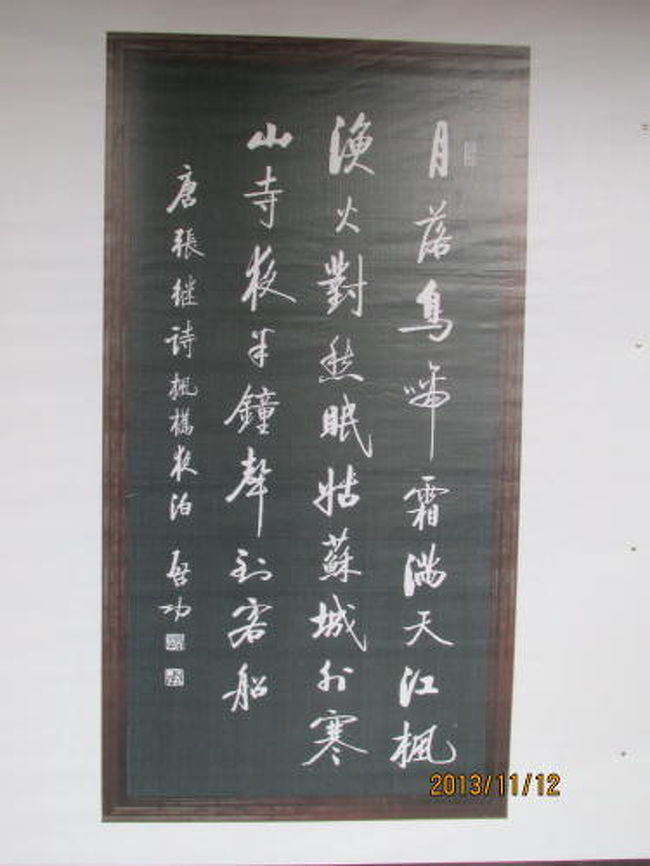 月落烏啼霜滿天江楓
漁火對愁眠姑蘇城外寒
山寺夜半鐘聲到客船
唐張继詩楓橋夜泊 啓功
2013/11/12